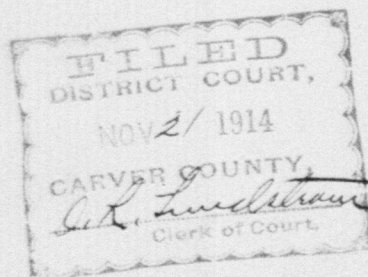 FILED
DISTRICT COURT,
NOV 21 1914
CARVER COUNTY,
Clerk of Court.